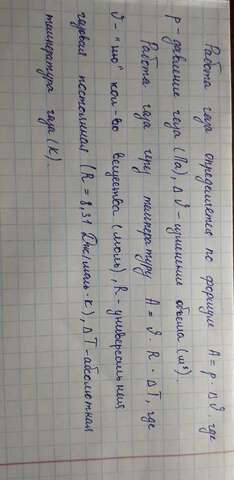 Работа газа определяется по формуле A = p · Δ𝜗, где
p - давление газа (Па), Δ𝜗 - изменение объема (м³).
Работа газа через температуру A = 𝜗 · R · ΔT, где
𝜗 - "ню" кол-во вещества (моль), R - универсальная
газовая постоянная (R = 8,31 Дж/моль · К), ΔT - абсолютная
температура газа (К).